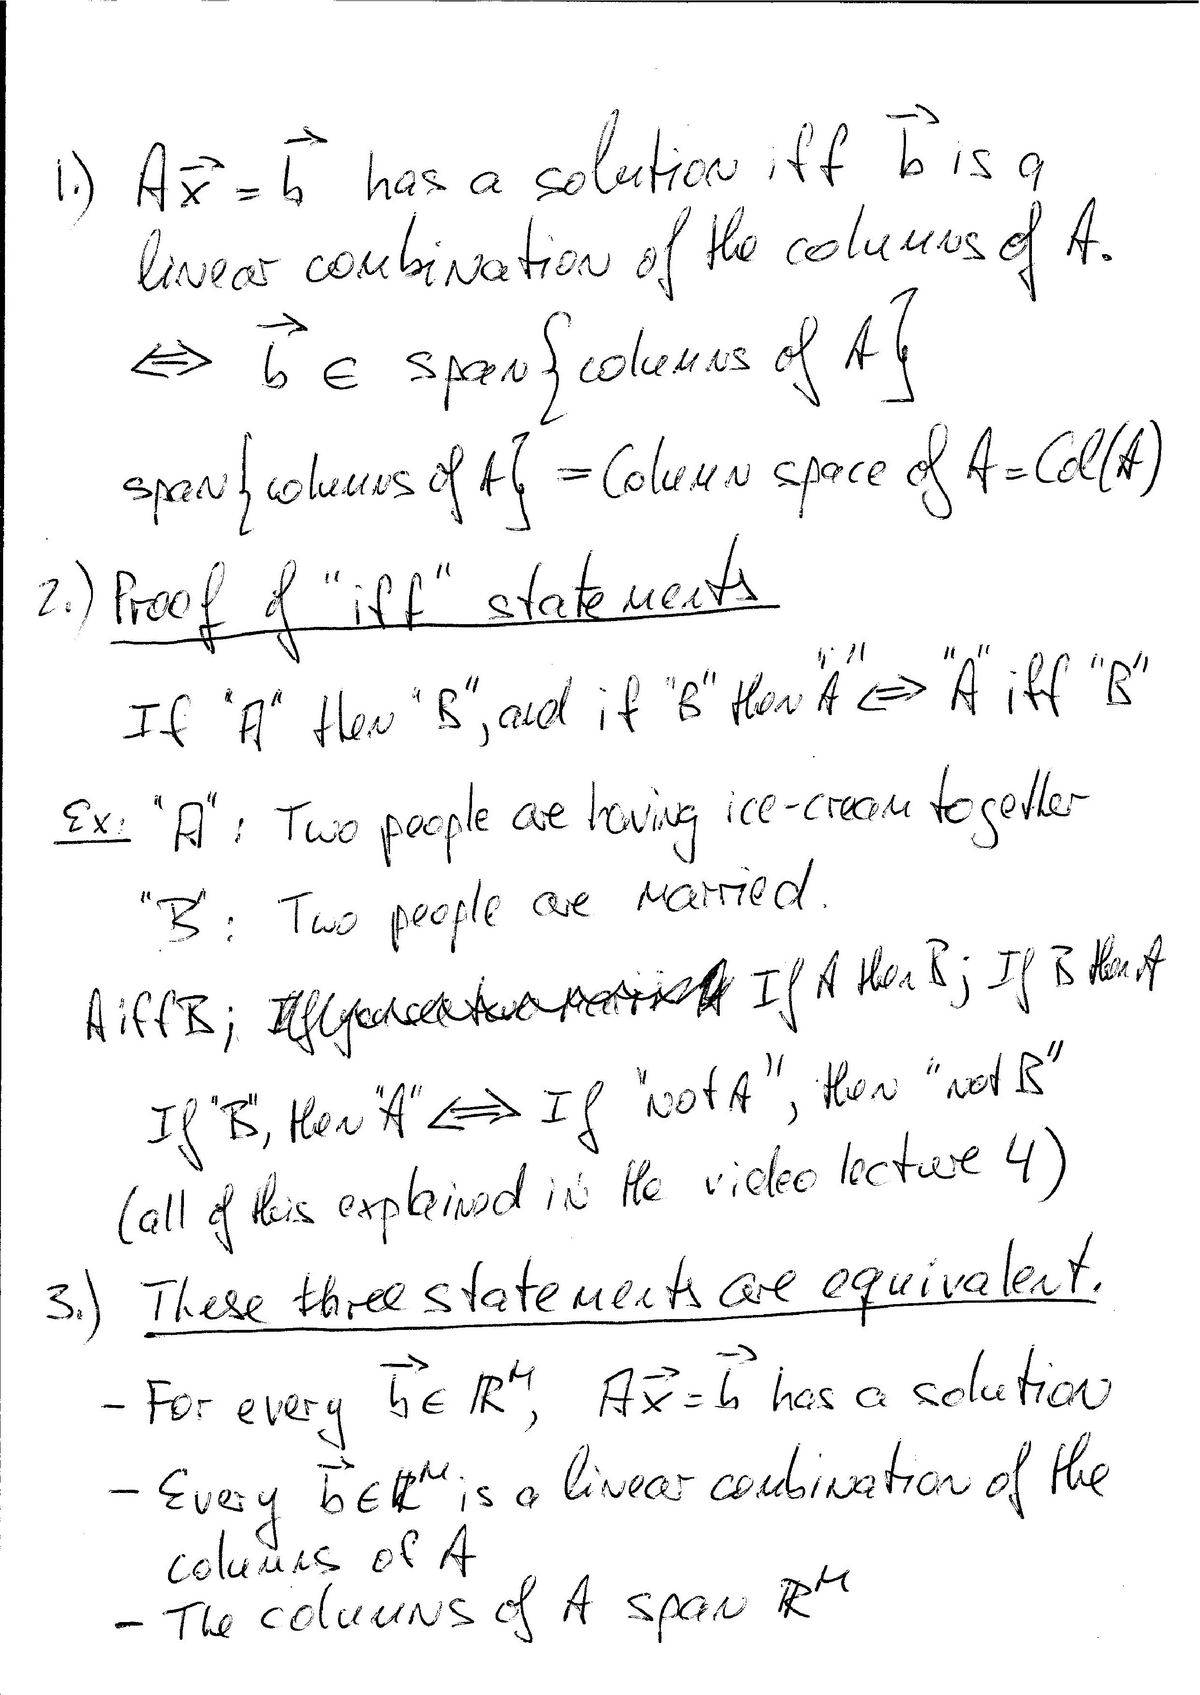 1.) Ax⃗ = b⃗ has a solution iff b⃗ is a
linear combination of the columns of A.
⟺ b⃗ ∈ span{columns of A}
span{columns of A} = Column space of A = Col(A)
2.) Proof of "iff" statements
If "A" then "B", and if "B" then "A" ⟺ "A" iff "B"
Ex: "A": Two people are having ice-cream together
"B": Two people are married.
A iff B; If A then B; If B then A
If "B", then "A" ⟺ If "not A", then "not B"
(all of this explained in the video lecture 4)
3.) These three statements are equivalent.
- For every b⃗ ∈ ℝᴹ, Ax⃗ = b⃗ has a solution
- Every b⃗ ∈ ℝᴹ is a linear combination of the
columns of A
- The columns of A span ℝᴹ